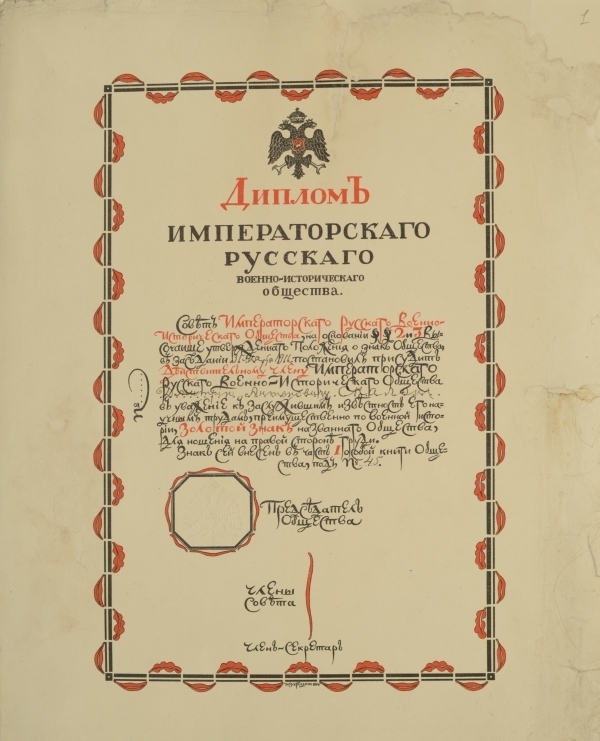 1
ДипломЪ
ИМПЕРАТОРСКАГО
РУССКАГО
ВОЕННО-ИСТОРИЧЕСКАГО
общества.
Совѣтъ Императорскаго Русскаго Военно-
Историческаго Общества, на основании §§ 2 и 3 Вы-
сочайше утвержденнаго Положенія о знакѣ Общества,
въ засѣданіи постановилъ присудить
Дѣйствительному члену Императорскаго
Русскаго Военно-Историческаго Общества
въ уваженіе къ заслужившимъ извѣстность его на-
учнымъ трудамъ, преимущественно по военной исто-
ріи, Золотой Знакъ названнаго Общества,
для ношенія на правой сторонѣ груди.
Знакъ сей внесенъ въ часть I годовой книги Обще-
ства, подъ № 45.
Предсѣдатель
Общества
Члены
Совѣта
Членъ-Секретарь